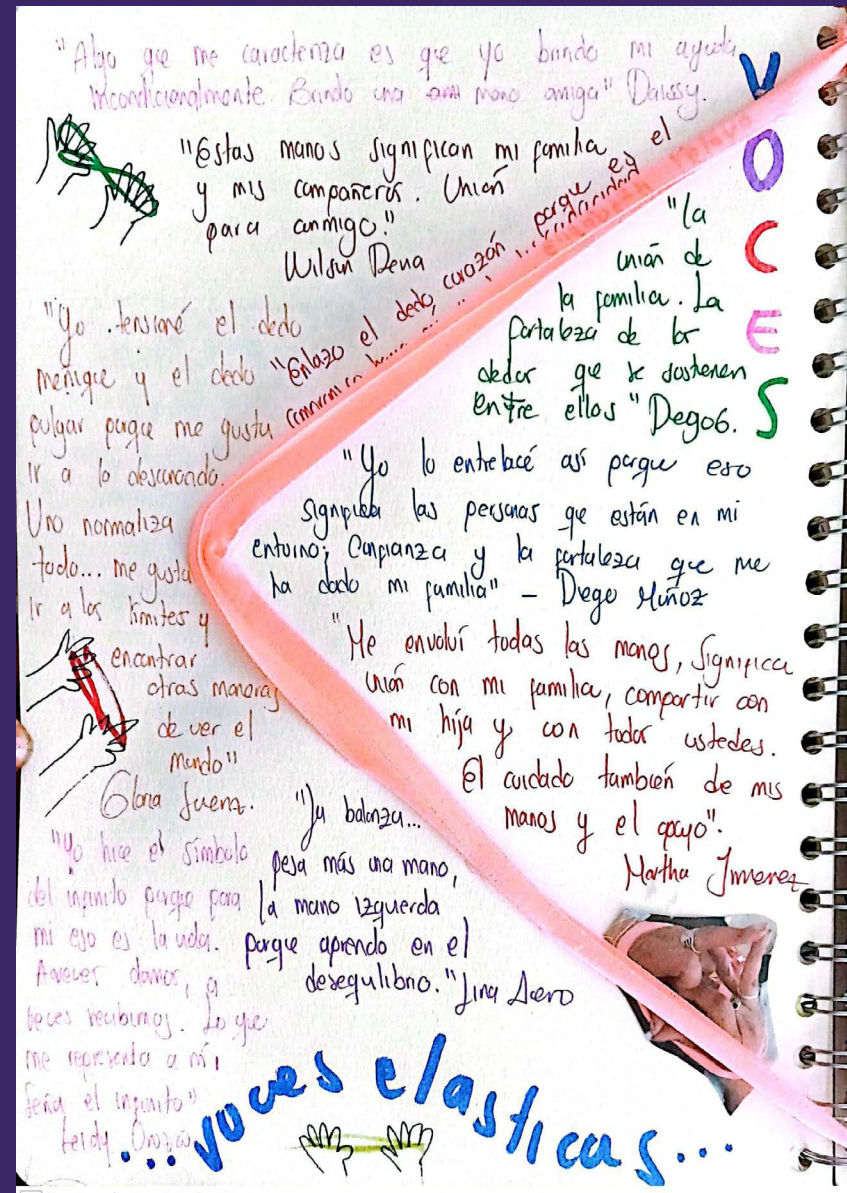 "Algo que me caracteriza es que yo brindo mi ayuda
incondicionalmente. Brindo una mano amiga" Daissy.
"Estas manos significan mi familia
y mis compañeros. Unión
para conmigo."
Wilson Pena
"Enlazo el dedo corazón porque es el
VOCES
"La
unión de
la familia. La
fortaleza de los
dedos que se sostienen
entre ellos" Diego G.
"Yo tensioné el dedo
meñique y el dedo
pulgar porque me gusta
ir a lo desconocido.
Uno normaliza
todo... me gusta
ir a los límites y
encontrar
otras maneras
de ver el
mundo"
Gloria
"Yo lo entrelacé así porque eso
significa las personas que están en mi
entorno; Confianza y la fortaleza que me
ha dado mi familia" – Diego Muñoz
"Me envolví todas las manos, significa
unión con mi familia, compartir con
mi hija y con todos ustedes.
El cuidado también de mis
manos y el apoyo".
Martha Jimenez
balanza...
pesa más una mano,
la mano izquierda
porque aprendo en el
desequilibrio." Lina Acero
"Yo hice el símbolo
del infinito porque para
mi eso es la vida.
Aveces damos, a
veces recibimos. Lo que
me representa a mí,
sería el infinito"
Leidy Orozco
...voces elasticas...